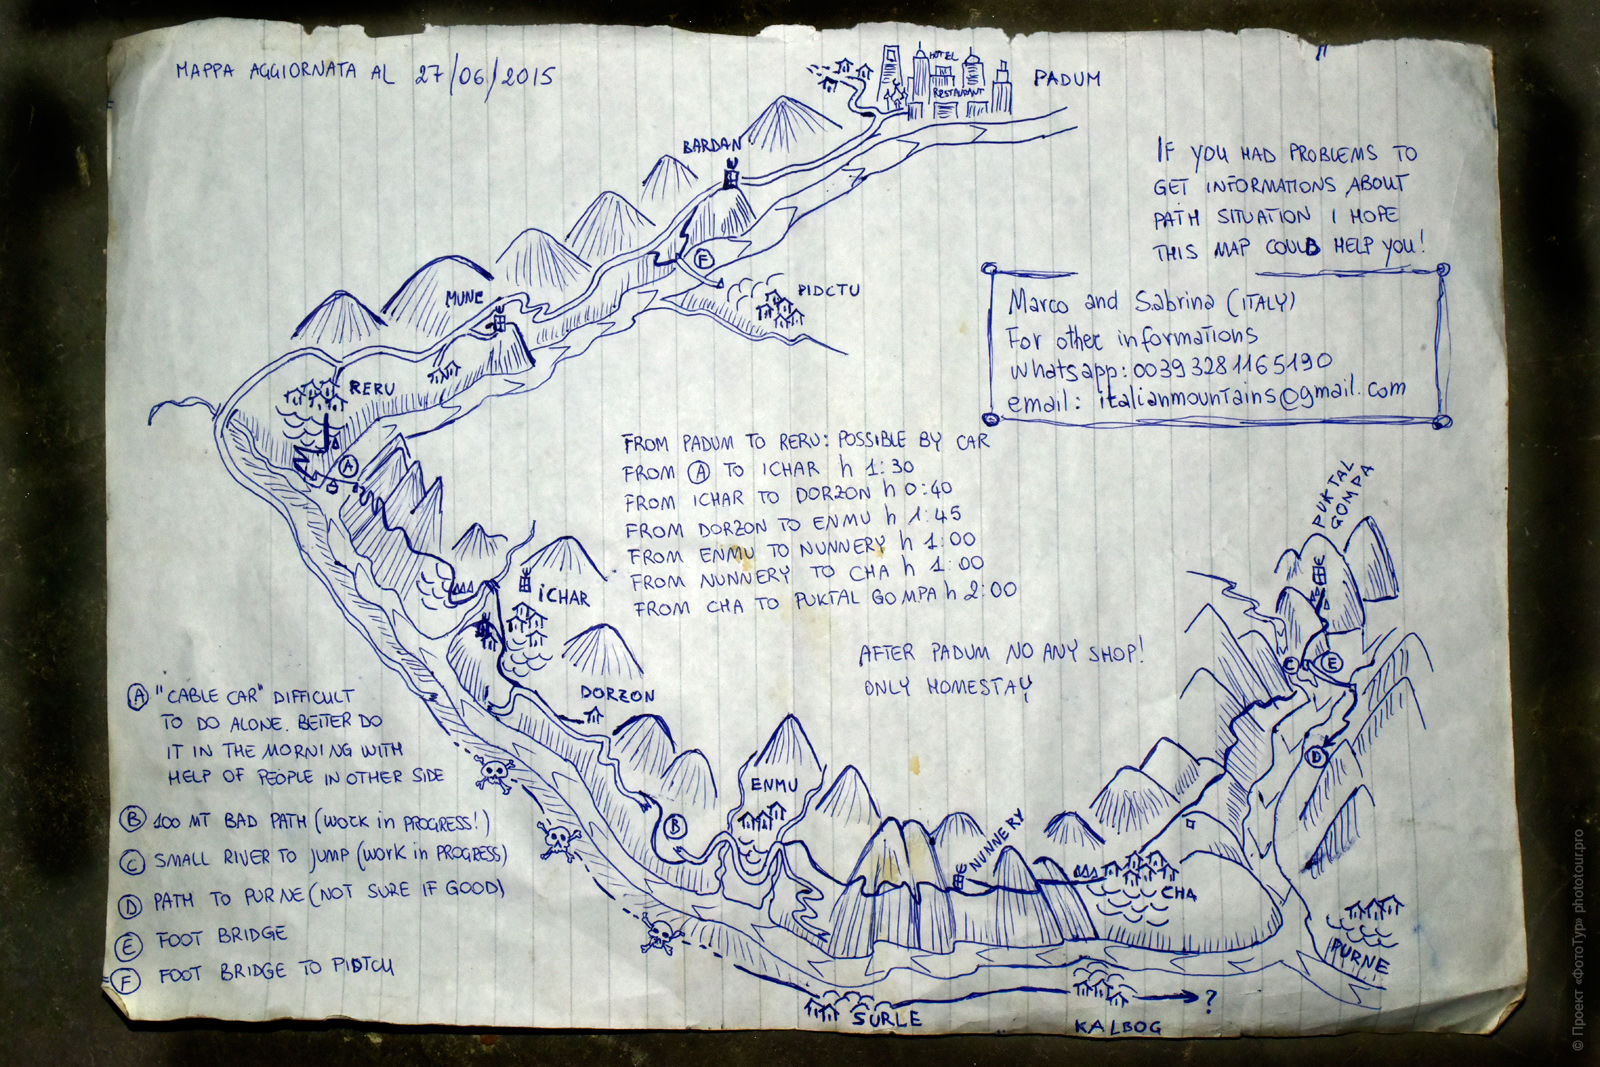 MAPPA AGGIORNATA AL 27/06/2015
HOTEL
RESTAURANT
PADUM
BARDAN
IF YOU HAD PROBLEMS TO
GET INFORMATIONS ABOUT
PATH SITUATION I HOPE
THIS MAP COULD HELP YOU!
F
PIDCTU
MUNE
Marco and Sabrina (ITALY)
For other informations
whatsapp: 0039 328 1165190
email: italianmountains@gmail.com
RERU
A
FROM PADUM TO RERU: POSSIBLE BY CAR
FROM A TO ICHAR h 1:30
FROM ICHAR TO DORZON h 0:40
FROM DORZON TO ENMU h 1:45
FROM ENMU TO NUNNERY h 1:00
FROM NUNNERY TO CHA h 1:00
FROM CHA TO PUKTAL GOMPA h 2:00
PUKTAL
GOMPA
ICHAR
AFTER PADUM NO ANY SHOP!
ONLY HOMESTAY
C
E
DORZON
D
A "CABLE CAR" DIFFICULT
TO DO ALONE. BETTER DO
IT IN THE MORNING WITH
HELP OF PEOPLE IN OTHER SIDE
B 100 MT BAD PATH (work in PROGRESS!)
C SMALL RIVER TO JUMP (work in PROGRESS)
D PATH TO PURNE (NOT SURE IF GOOD)
E FOOT BRIDGE
F FOOT BRIDGE TO PIDTCU
ENMU
B
NUNNERY
CHA
PURNE
SURLE
KALBOG
?
© Проект «ФотоТур» phototour.pro